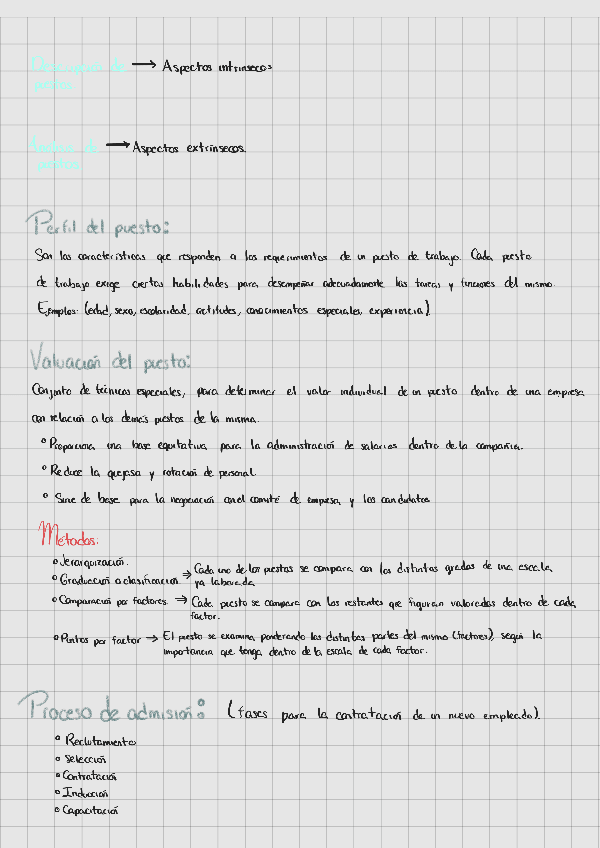 Descripción de → Aspectos intrínsecos
puestos
Análisis de → Aspectos extrínsecos.
puestos
Perfil del puesto:
Son las características que responden a los requerimientos de un puesto de trabajo. Cada puesto
de trabajo exige ciertas habilidades para desempeñar adecuadamente las tareas y funciones del mismo.
Ejemplos: (edad, sexo, escolaridad, actitudes, conocimientos especiales, experiencia).
Valuación del puesto:
Conjunto de técnicas especiales, para determinar el valor individual de un puesto dentro de una empresa
con relación a los demás puestos de la misma.
° Proporciona una base equitativa para la administración de salarios dentro de la compañía.
° Reduce la quejasa y rotación de personal
° Sirve de base para la negociación con el comité de empresa, y los candidatos
Métodos:
° Jerarquización.
° Graduación o clasificación → Cada uno de los puestos se compara con los distintos grados de una escala,
ya laborada
° Comparación por factores. → Cada puesto se compara con los restantes que figuran valorados dentro de cada
factor.
° Puntos por factor → El puesto se examina ponderando las distintas partes del mismo (factores), según la
importancia que tenga dentro de la escala de cada factor.
Proceso de admisión: (fases para la contratación de un nuevo empleado).
° Reclutamiento
° Selección
° Contratación
° Inducción
° Capacitación